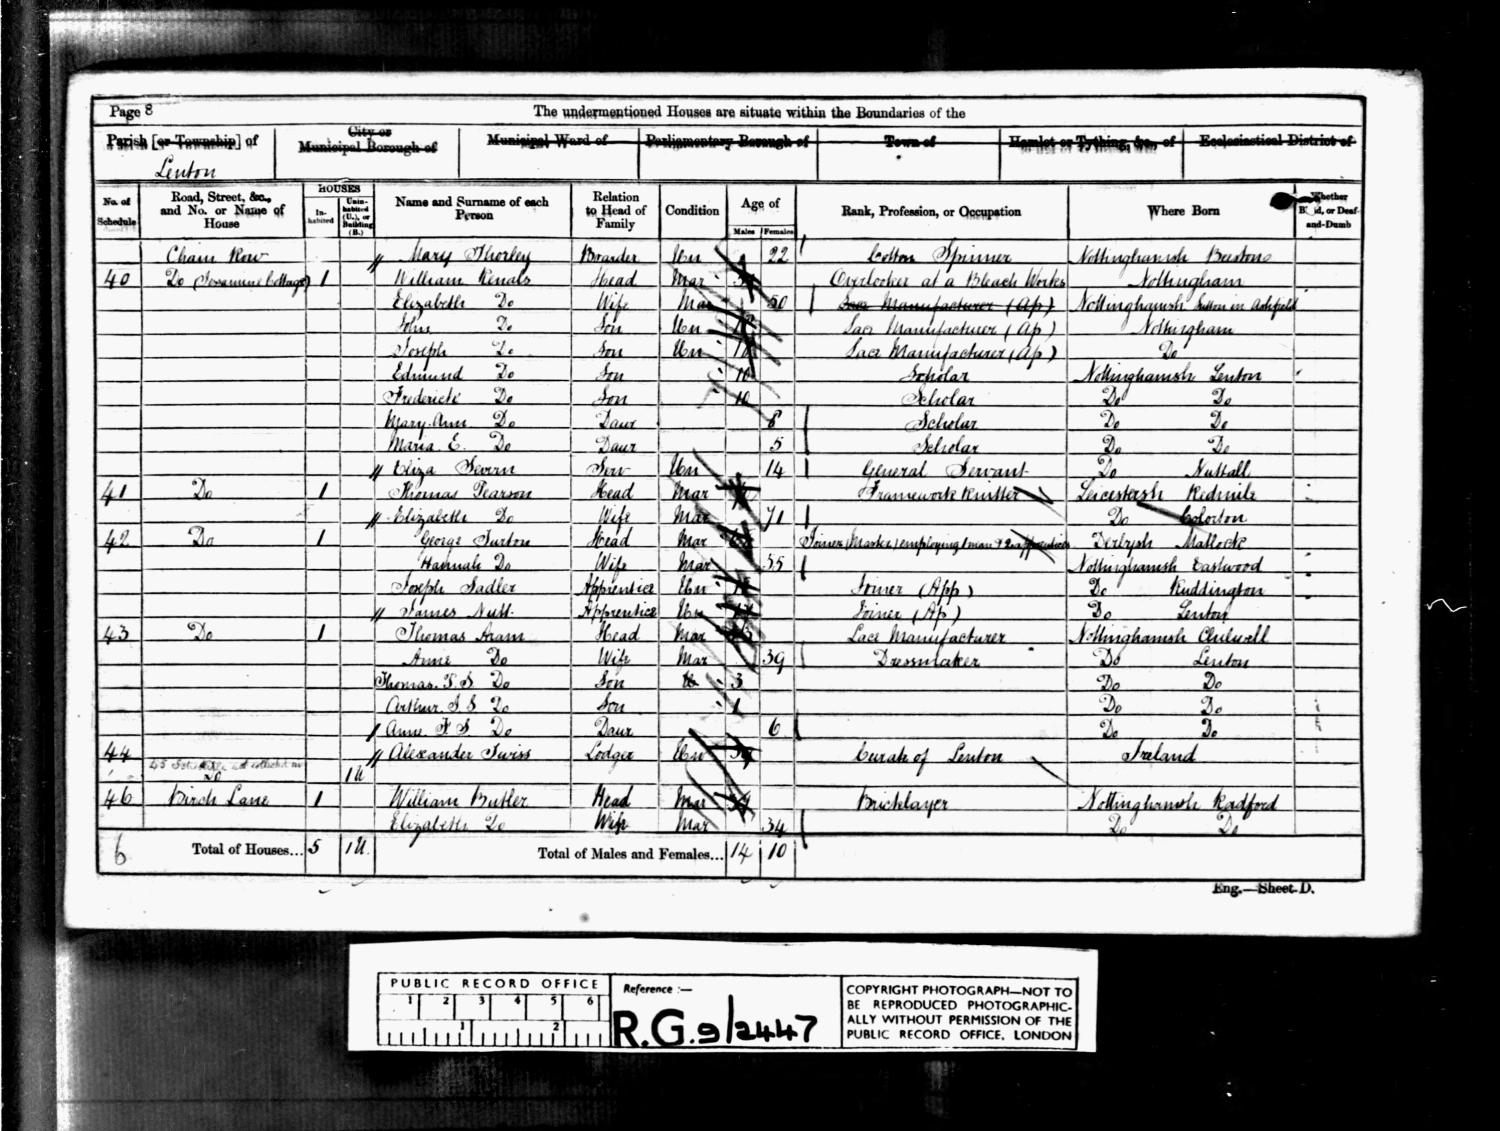 Page 8
The undermentioned Houses are situate within the Boundaries of the
Parish [or Township] of
City or Municipal Borough of
Municipal Ward of
Parliamentary Borough of
Town of
Hamlet or Tything, &c., of
Ecclesiastical District of
Lenton
No. of Schedule
Road, Street, &c., and No. or Name of House
HOUSES
In-habited
Unin-habited (U.), or Building (B.)
Name and Surname of each Person
Relation to Head of Family
Condition
Age of
Males
Females
Rank, Profession, or Occupation
Where Born
Whether Blind, or Deaf-and-Dumb
Chain Row Mary Thorley Boarder Un 22 Cotton Spinner Nottinghamsh Beeston
40 Do (Jessamine Cottage) 1 William Renals Head Mar Overlooker at a Bleach Works Nottingham
Elizabeth Do Wife Mar 50 Lace Manufacturer (Ap) Nottinghamsh Sutton in Ashfield
John Do Son Un Lace Manufacturer (Ap) Nottingham
Joseph Do Son Un Lace Manufacturer (Ap) Do
Edmund Do Son 10 Scholar Nottinghamsh Lenton
Frederick Do Son 10 Scholar Do Do
Mary Ann Do Daur 8 Scholar Do Do
Maria E. Do Daur 5 Scholar Do Do
Eliza Severn Serv Un 14 General Servant Do Nuttall
41 Do 1 Thomas Pearson Head Mar Framework Knitter Leicestersh Redmile
Elizabeth Do Wife Mar 71 Do Colorton
42 Do 1 George Turton Head Mar Joiner (Master) employing 1 man & 2 apprentices Derbysh Matlock
Hannah Do Wife Mar 55 Nottinghamsh Eastwood
Joseph Sadler Apprentice Un Joiner (App) Do Ruddington
James Nutt Apprentice Un Joiner (Ap) Do Lenton
43 Do 1 Thomas Aram Head Mar Lace Manufacturer Nottinghamsh Chilwell
Anne Do Wife Mar 39 Dressmaker Do Lenton
Thomas. T. S. Do Son 3 Do Do
Arthur. S. S. Do Son 1 Do Do
Anne F. S. Do Daur 6 Do Do
44 Alexander Swiss Lodger Un Curate of Lenton Ireland
45 Do 1U
46 Birch Lane 1 William Butler Head Mar Bricklayer Nottinghamsh Radford
Elizabeth Do Wife Mar 34 Do Do
6 Total of Houses... 5 1U. Total of Males and Females... 14 10
Eng.—Sheet D.
PUBLIC RECORD OFFICE
1 2 3 4 5 6
1 2
Reference :—
R.G. 9/2447
COPYRIGHT PHOTOGRAPH—NOT TO
BE REPRODUCED PHOTOGRAPHIC-
ALLY WITHOUT PERMISSION OF THE
PUBLIC RECORD OFFICE, LONDON